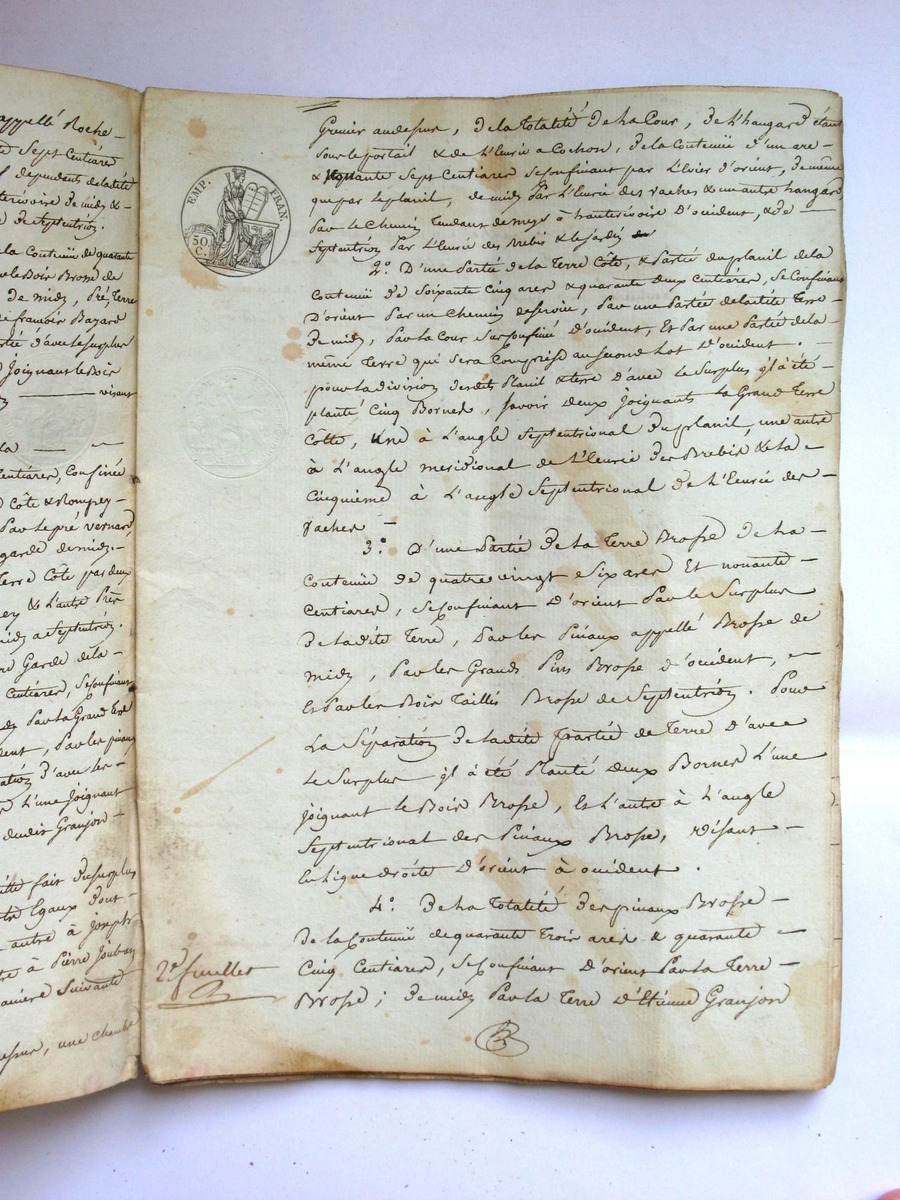 appellé Roche-
Sept Centiares
dependents de ladite
de midi &
de Septentrion.
la Contenüe de quarante
le Bois Brosse de
de midi, Pré, Terre
de francois Bazard
d'avec le surplus
Joignant le Bois
visant
Centiares, Confinée
Côte & Rompey-
Par le pré vernard
garde de midi-
Terre Côte par deux
& L'autre Près
midi a Septentrion.
Garde de la-
Centiares, se Confinant
Par la Grand Terre
Par les pinaux
d'avec les-
L'une Joignant
dudit Granjon-
fait du surplus
Egaux dont-
autre à joseph
à Pierre Joubany
maniere Suivante
une chambre
EMP. FRAN.
50 C.
Grenier au dessus, de la Totalité de La Cour, de L'hangard étant
sous le portail & de L'Eurie a Cochon, de la Contenüe d'un are-
& Sept Centiares se Confinant par L'Evier d'orient, de même
que par le planil, de midi Par L'Eurie des vaches & un autre hangard,
Par le Chemin Tendant de à hauterivoire D'occident, & de —
Septentrion Par L'Eurie des Brebis & le Jardin
2.° D'une Partie de la Terre Côte, & Partie du planil de la
Contenüe de Soixante Cinq ares & quarante deux Centiares, se Confinant
D'orient Par un Chemin de service, Par une Partie de la dite Terre
de midi, Par la Cour sus Confinée D'occident, Et Par une Partie de la
même Terre qui sera Comprise au second Lot D'occident. —
pour la division desdits Planil & terre d'avec Le Surplus il à été
planté Cinq Bornes, savoir deux Joignants La Grand Terre
Côte, une à L'angle Septentrional du planil, une autre
à L'angle meridional de L'Eurie des Brebis & la -
Cinquième à L'angle Septentrional de L'Eurie des
Vaches —
3.° D'une Partie de La Terre Brosse de La-
Contenüe de quatre vingt e Six ares Et nonante-
Centiares, se Confinant D'orient Par le Surplus
de la dite Terre, Par les Pinaux appellé Brosse de
midi, Par les Grands Pins Brosse d'occident, -
Et Par les Bois Taillés Brosse de Septentrion. Pour
La Séparation de la dite Partie de Terre D'avec
Le Surplus il à été Planté deux Bornes L'une
Joignant le Bois Brosse, Et L'autre à L'angle
Septentrional des Pinaux Brosse, visant —
En ligne droite D'orient à occident.
4.° de La Totalité des pinaux Brosse-
de la Contenüe de quarante Trois ares & quarante -
Cinq Centiares, se Confinant D'orient Par la Terre-
Brosse; de midi Par la Terre D'Etienne Granjon
2.e feuillet